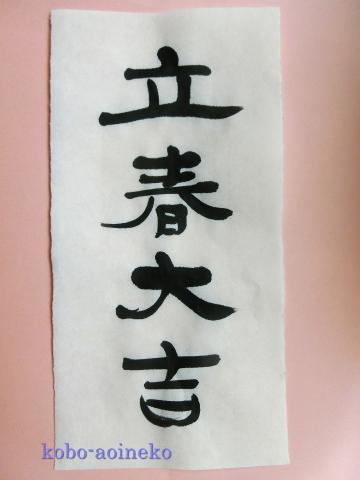 立春大吉
kobo-aoineko